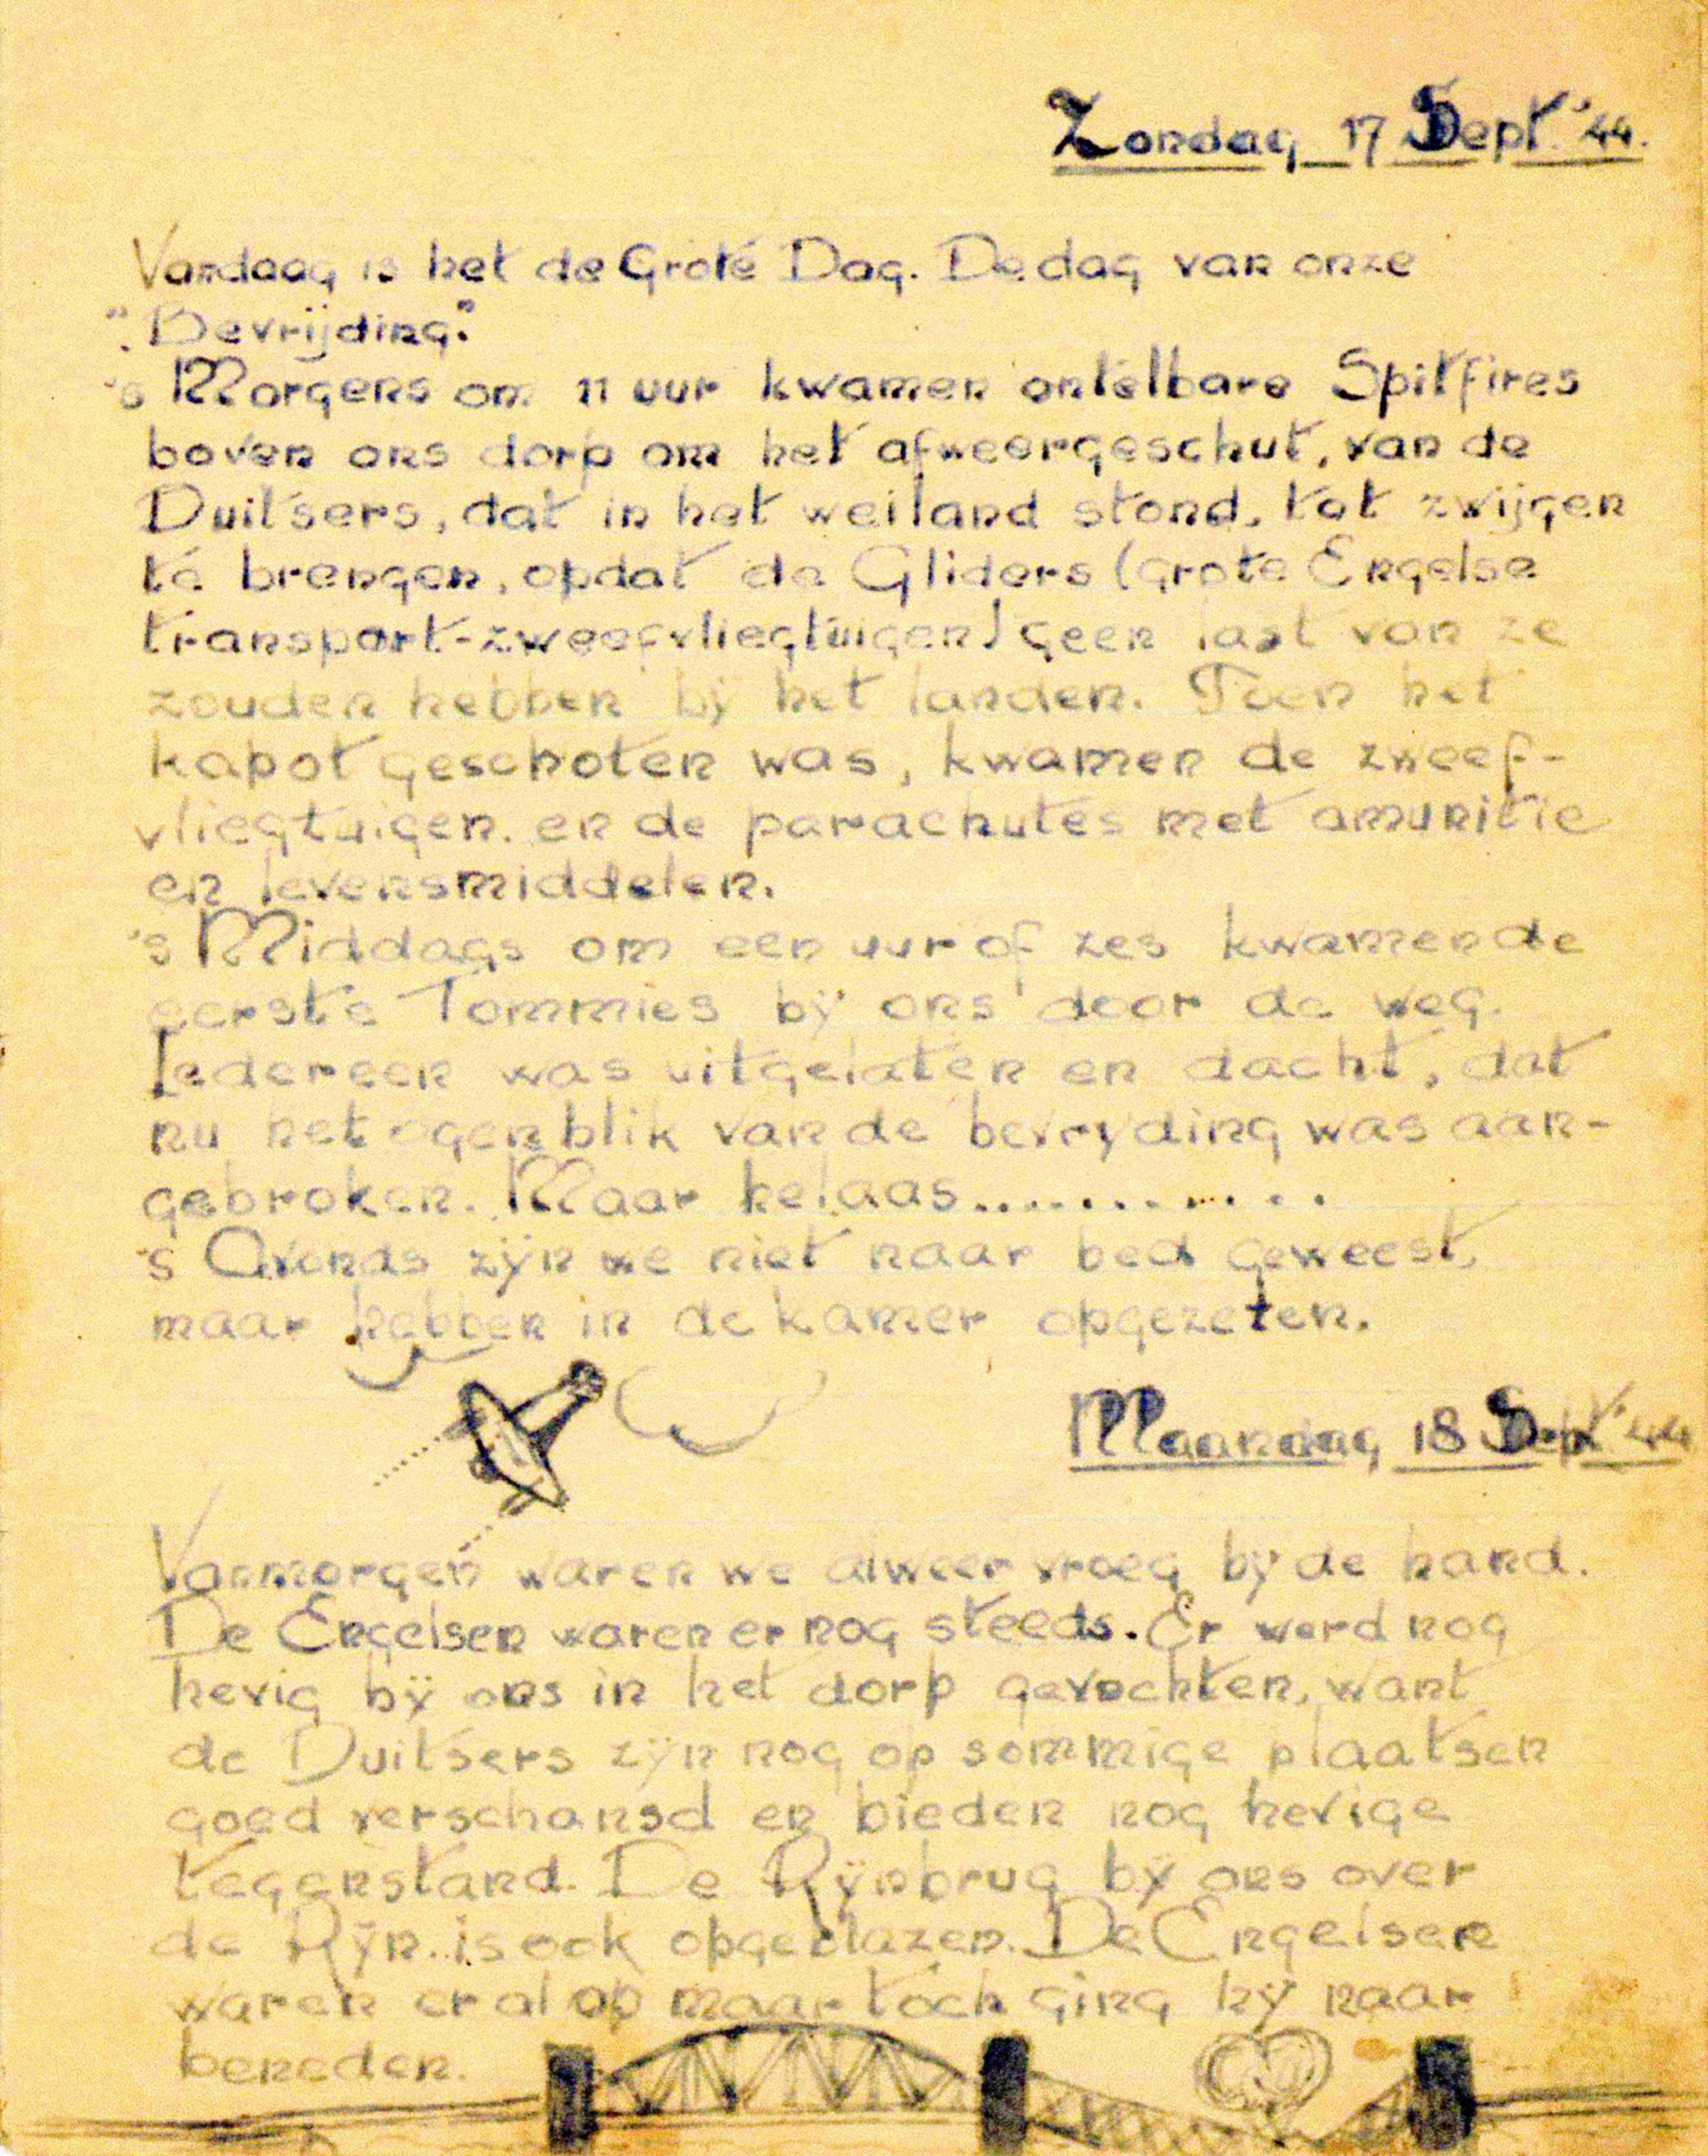 Zondag 17 Sept '44.
Vandaag is het de Grote Dag. De dag van onze
"Bevrijding."
's Morgens om 11 uur kwamen ontelbare Spitfires
boven ons dorp om het afweergeschut, van de
Duitsers, dat in het weiland stond, tot zwijgen
te brengen, opdat de Gliders (grote Engelse
transport-zweefvliegtuigen) geen last van ze
zouden hebben bij het landen. Toen het
kapot geschoten was, kwamen de zweef-
vliegtuigen en de parachutes met amunitie
en levensmiddelen.
's Middags om een uur of zes kwamen de
eerste Tommies bÿ ons door de weg.
Iedereen was uitgelaten en dacht, dat
nu het ogenblik van de bevryding was aan-
gebroken. Maar helaas............
's Avonds zÿn we niet naar bed geweest,
maar hebben in de kamer opgezeten.
Maandag 18 Sept '44
Vanmorgen waren we alweer vroeg bÿ de hand.
De Engelsen waren er nog steeds. Er werd nog
hevig bÿ ons in het dorp gevochten, want
de Duitsers zÿn nog op sommige plaatsen
goed verschansd en bieden nog hevige
tegenstand. De Rÿnbrug bÿ ons over
de Rÿn is ook opgeblazen. De Engelsen
waren er al op maar toch ging hÿ naar
beneden.